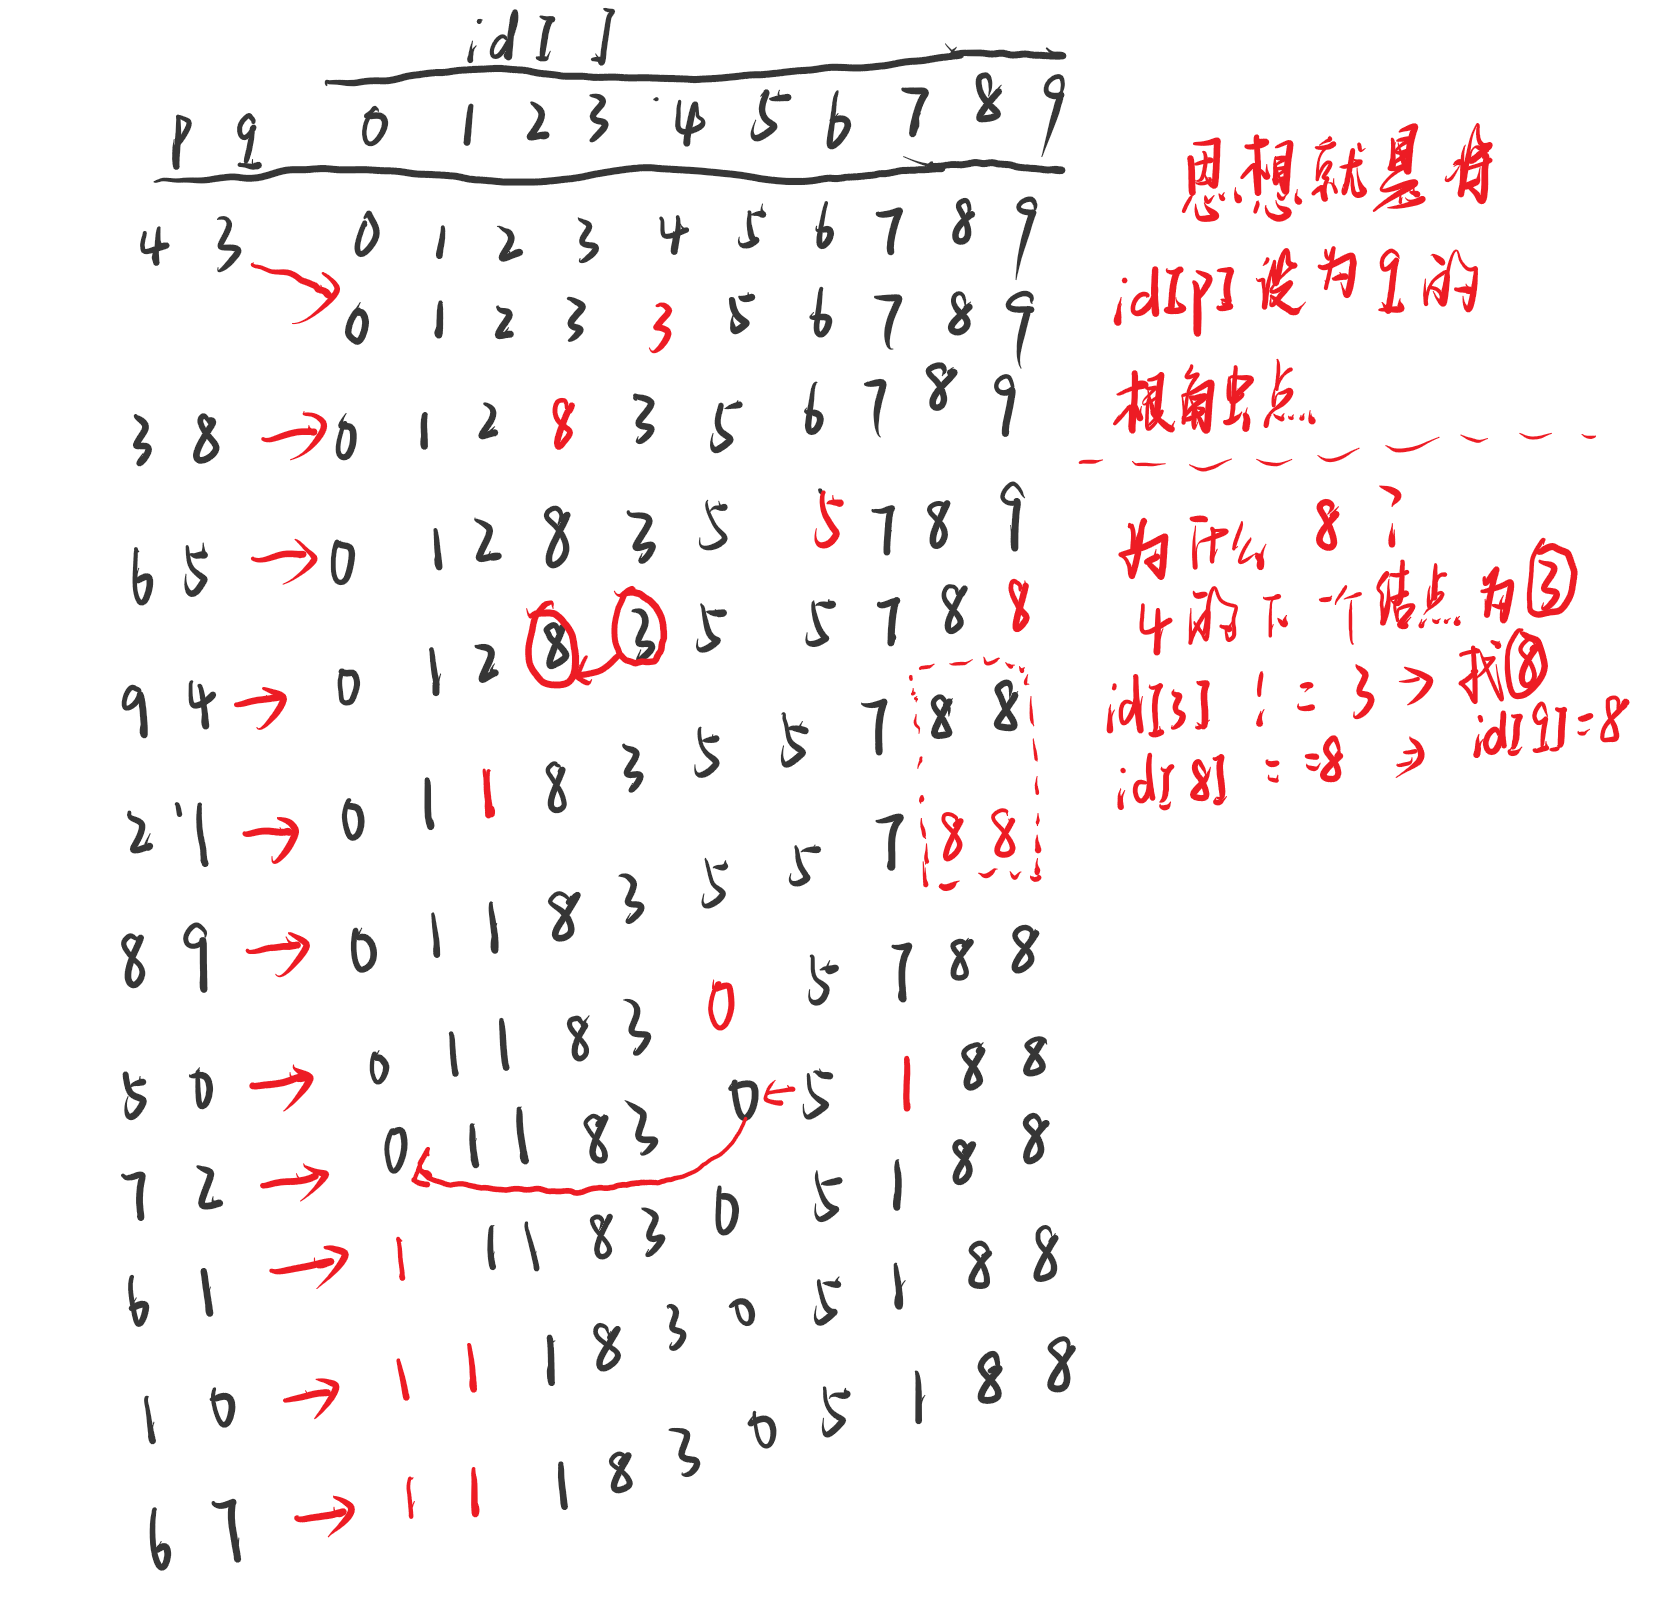 id[ ]
p q 0 1 2 3 4 5 6 7 8 9
4 3 0 1 2 3 4 5 6 7 8 9
→ 0 1 2 3 3 5 6 7 8 9
3 8 → 0 1 2 8 3 5 6 7 8 9
6 5 → 0 1 2 8 3 5 5 7 8 9
9 4 → 0 1 2 8 3 5 5 7 8 8
2 1 → 0 1 1 8 3 5 5 7 8 8
8 9 → 0 1 1 8 3 5 5 7 8 8
5 0 → 0 1 1 8 3 0 5 7 8 8
7 2 → 0 1 1 8 3 0 5 1 8 8
6 1 → 1 1 1 8 3 0 5 1 8 8
1 0 → 1 1 1 8 3 0 5 1 8 8
6 7 → 1 1 1 8 3 0 5 1 8 8
思想就是将
id[p]设为q的
根触点
为什么 8?
4的下一个结点为③
id[3] != 3 → 找⑧
id[8] ==8 → id[9]=8